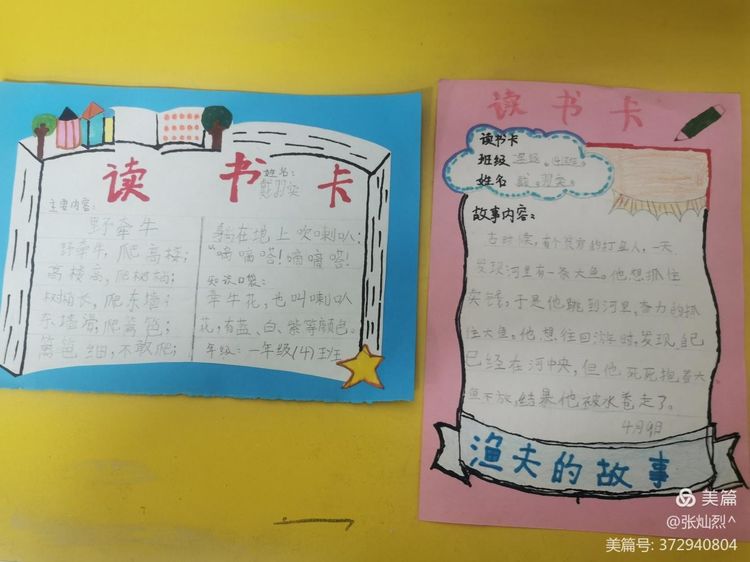 读书卡
姓名:
主要内容:
野牵牛
野牵牛,爬高楼;
高楼高,爬树梢;
树梢长,爬东墙;
东墙滑,爬篱笆;
篱笆细,不敢爬;
躺在地上吹喇叭:
“嘀嘀嗒!嘀嘀嗒!
知识口袋:
牵牛花,也叫喇叭
花,有蓝、白、紫等颜色。
年级:一年级(4)班
读书卡
读书卡
班级
姓名
故事内容:
古时候,有个贫穷的打鱼人,一天
发现河里有一条大鱼。他想抓住
卖钱,于是他跳到河里,奋力的抓
住大鱼。他想往回游时,发现自己
已经在河中央,但他死死抱着大
鱼不放,结果他被水卷走了。
4月9日
渔夫的故事
美篇
@张灿烈^
美篇号: 372940804